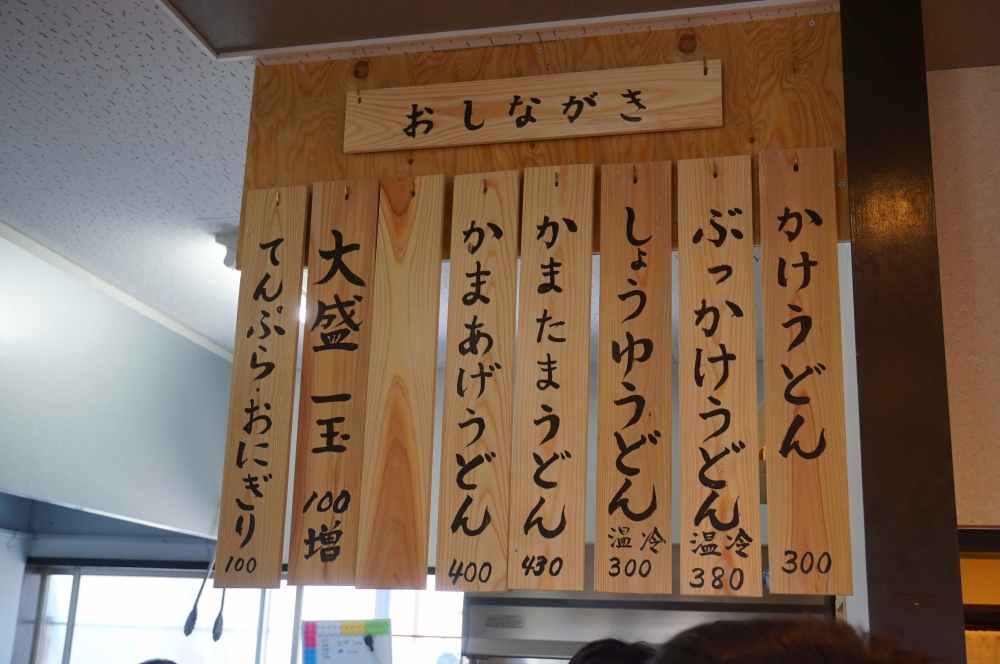 おしながき
かけうどん
300
ぶっかけうどん
冷 温
380
しょうゆうどん
冷 温
300
かまたまうどん
430
かまあげうどん
400
大盛 一玉
100
増
てんぷら・おにぎり
100